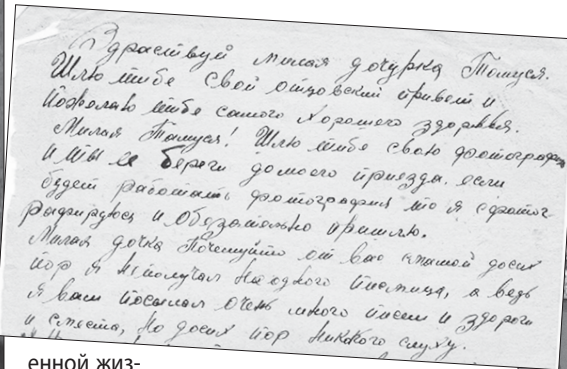 Здраствуй милая дочурка Томуся.
Шлю тибе свой отцовский привет и
пожелаю тибе самого хорошего здоровья.
Милая Томуся! Шлю тибе свою фотографию
и ты ее береги до моего приезда. если
будет работать фотография то я сфотог-
рафируюсь и обезательно пришлю.
Милая дочка Почемуйто от вас с мамой досих
пор я неполучал ниодного письмица, а ведь
я вам посылал очень много писем и здороги
и сместа, но досих пор никакого слуху.
енной жиз-